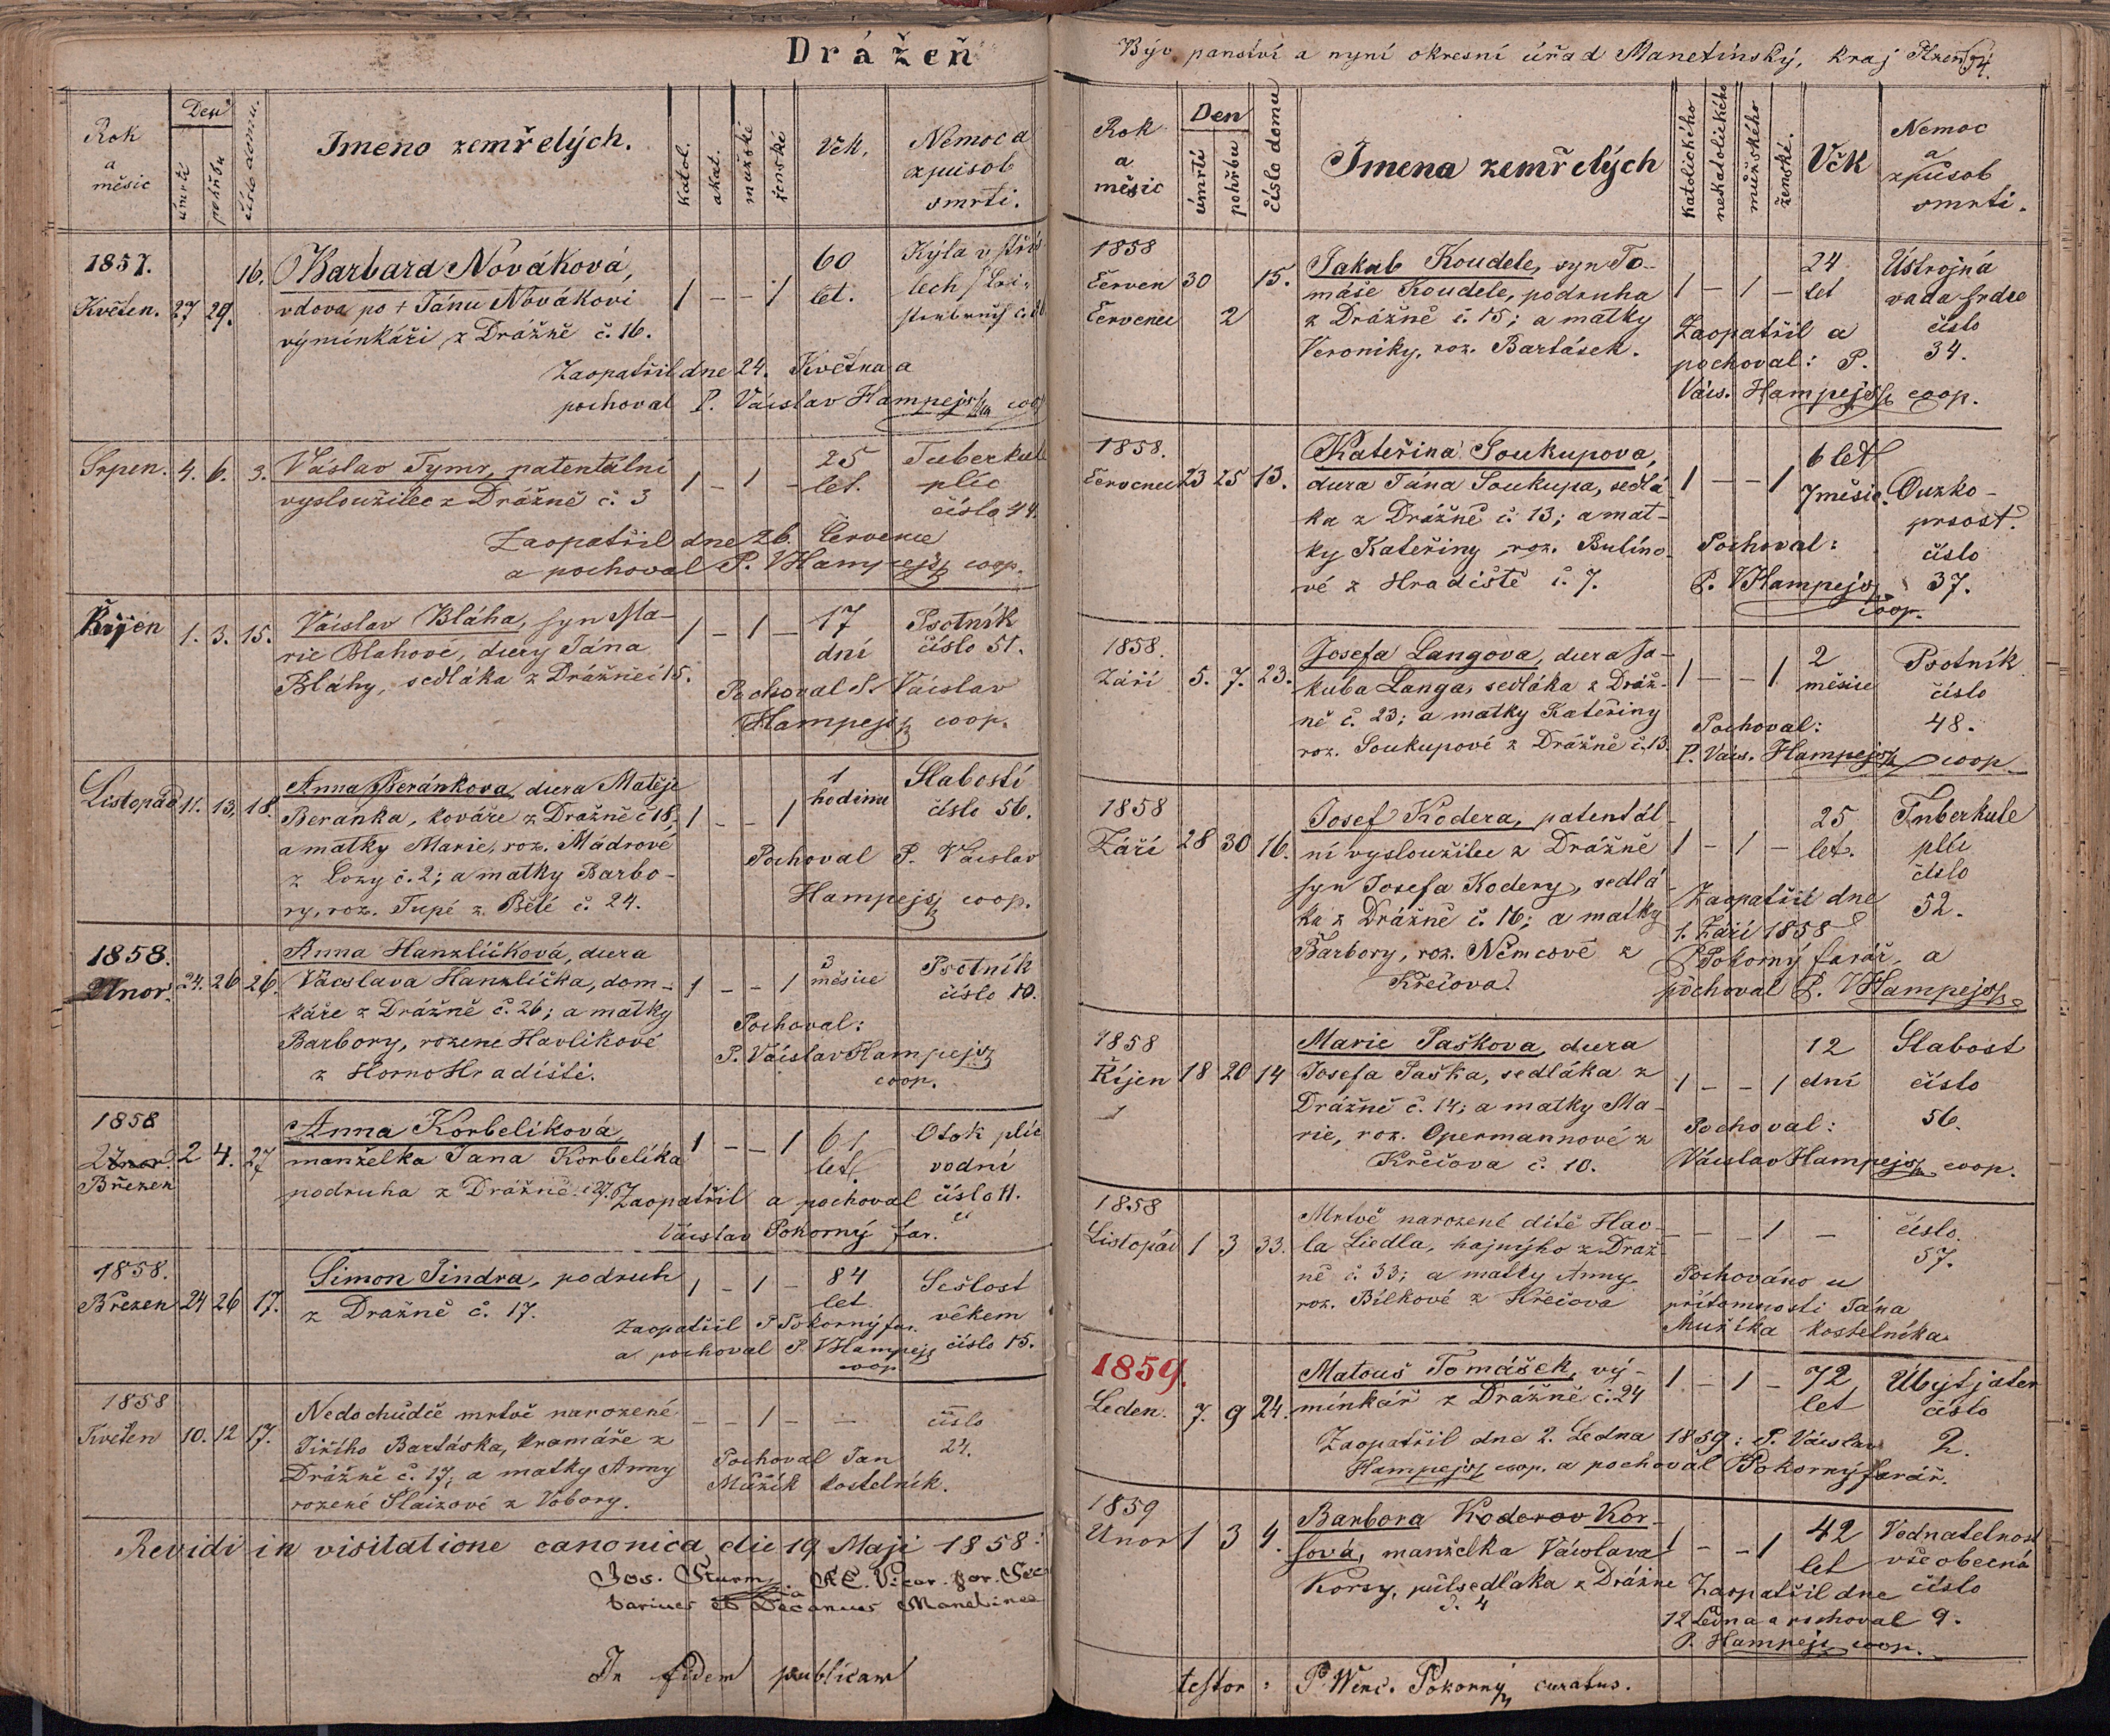 Drážeň
Rok
a
měsíc
Den
úmrtí
pohřbu
číslo domu.
Jmeno zemřelých.
katol.
akat.
mužské
ženské
Věk.
Nemoc a
způsob
smrti.
1857.
Květen. 27 29. 16. Barbara Nováková,
vdova po + Jánu Novákovi
výminkáři z Drážně č. 16.
1 – – 1 60
let.
Kýla v
Zaopatřil dne 24. Května a
pochoval P. Václav Hampejs coop.
Srpen. 4. 6. 3. Václav Tymr, patentální
vysloužilec z Drážně č. 3
1 – 1 – 25
let.
Tuberkule
plic
číslo 44.
Zaopatřil dne 26. Července
a pochoval P. V Hampejs coop.
Říjen 1. 3. 15. Václav Bláha, syn Ma-
rie Blahové, dcery Jána
Bláhy, sedláka z Drážně č 15.
1 – 1 – 17
dní
Psotník
číslo 51.
Pochoval P. Václav
Hampejs coop.
Listopad 11. 13. 18. Anna Beránkova, dcera Matěje
Beranka, kováře z Dražně č 18,
a matky Marie, roz. Mádrové
z Lozy č. 2; a matky Barbo-
ry, roz. Tupé z Bělé č. 24.
1 – – 1 1
hodinu
Slabostí
číslo 56.
Pochoval P. Václav
Hampejs coop.
1858.
Únor. 24. 26 26. Anna Hanzlíčková, dcera
Václava Hanzlíčka, dom-
káře z Drážně č. 26; a matky
Barbory, rozené Havlikové
z Horno Hradiště.
1 – – 1 3
měsíce
Psotník
číslo 10.
Pochoval:
P. Václav Hampejs
coop.
1858
Únor.
Březen
2 4. 27 Anna Korbeliková
manželka Jana Korbelíka
podruha z Drážně č 27.
1 – – 1 61
let
Otok plic
vodní
číslo 11.
Zaopatřil a pochoval
Václav Pokorný far.
1858.
Březen 24 26 17. Šimon Jindra, podruh
z Dražně č. 17.
1 – 1 – 84
let
Sešlost
věkem
číslo 15.
Zaopatřil P Pokorný far.
a pochoval P. V Hampejs
coop
1858
Květen 10. 12 17. Nedochůdče mrtvě narozené
Jiřího Bartáska, kramáře z
Drážně č. 17; a matky Anny
rozené Slaizové z Vobory.
– – 1 – –
číslo
24.
Pochoval Jan
Mužík kostelník.
Revidi in visitatione canonica die 19 Maji 1858:
Jos. Sturm, Vicar. for. Sec
tarius et Decanus Manetinee
In fidem publicam
Býv. panství a nyní okresní úřad Manetínský, kraj Plzeň
Rok
a
měsíc
Den
úmrtí
pohřbu
číslo domu
Jmena zemřelých
katolického
nekatolického
mužského
ženské.
Věk
Nemoc
a
způsob
smrti.
1858
Červen 30
Červenec 2
15. Jakub Koudele, syn To-
máše Koudele, podruha
z Drážně č. 15; a matky
Veroniky, roz. Bartásek.
1 – 1 – 24
let
Ústrojná
vada srdce
číslo
34.
Zaopatřil a
pochoval: P.
Václ. Hampejs coop.
1858.
Červenec 23 25 13. Kateřina Soukupova,
dcera Jána Soukupa, sedlá-
ka z Drážně č. 13; a mat-
ky Kateřiny roz. Bulíno-
vé z Hradiště č. 7.
1 – – 1 6 let
7 měsíc.
Ouzko-
prsost.
číslo
37.
Pochoval:
P. V Hampejs
coop.
1858.
Září 5. 7. 23. Josefa Langova, dcera Ja-
kuba Langa, sedláka z Dráž-
ně č. 23; a matky Kateřiny
roz. Soukupové z Drážně č. 13.
1 – – 1 2
měsíce
Psotník
číslo
48.
Pochoval:
P. Václ. Hampejs coop
1858
Září 28 30 16. Josef Kodera, patentál-
ní vysloužilec z Drážně
syn Josefa Kodery, sedlá-
ka z Drážně č. 16; a matky
Barbory, roz. Němcové z
Křečova
1 – 1 – 25
let.
Tuberkule
plic
číslo
52.
Zaopatřil dne
1. Září 1858
P Pokorný farář, a
pochoval P. V Hampejs
1858
Říjen 18 20 14 Marie Paškova, dcera
Josefa Paška, sedláka z
Drážně č. 14; a matky Ma-
rie, roz. Opermannové z
Křečova č. 10.
1 – – 1 12
dní
Slabost
číslo
56.
Pochoval:
Václav Hampejs coop.
1858
Listopád 1 3 33. Mrtvě narozené dítě Hav-
la Liedla, hajného z Draž-
ně č. 33; a matky Anny
roz. Bílkové z Křečova
– – – 1 –
číslo.
57.
Pochováno u
přítomnosti Jána
Mužíka kostelníka
1859.
Leden. 7. 9 24. Matouš Tomášek, vý-
minkář z Drážně č. 24
1 – 1 – 72
let
Úbyt jater
číslo
2.
Zaopatřil dne 2. Ledna 1859: P. Václav
Hampejs coop. a pochoval Pokorný farář.
1859
Únor 1 3 4. Barbora Koderov Kor-
sová, manželka Václava
Korsy, půlsedláka z Drážně
č. 4
1 – – 1 42
let
Vodnatelnost
všeobecná
číslo
9.
Zaopatřil dne
12 Ledna a pochoval
P. Hampejs coop.
testor: P. Wenc. Pokorný curatus.